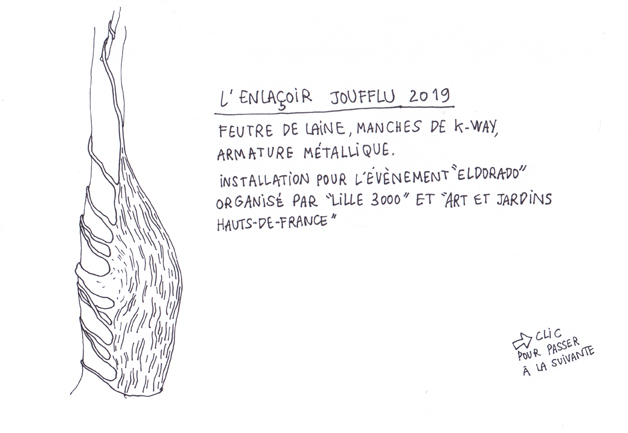 L'ENLAÇOIR JOUFFLU 2019
FEUTRE DE LAINE, MANCHES DE K-WAY,
ARMATURE MÉTALLIQUE.
INSTALLATION POUR L'ÉVÈNEMENT "ELDORADO"
ORGANISÉ PAR "LILLE 3000" ET "ART ET JARDINS
HAUTS-DE-FRANCE"
CLIC
POUR PASSER
À LA SUIVANTE